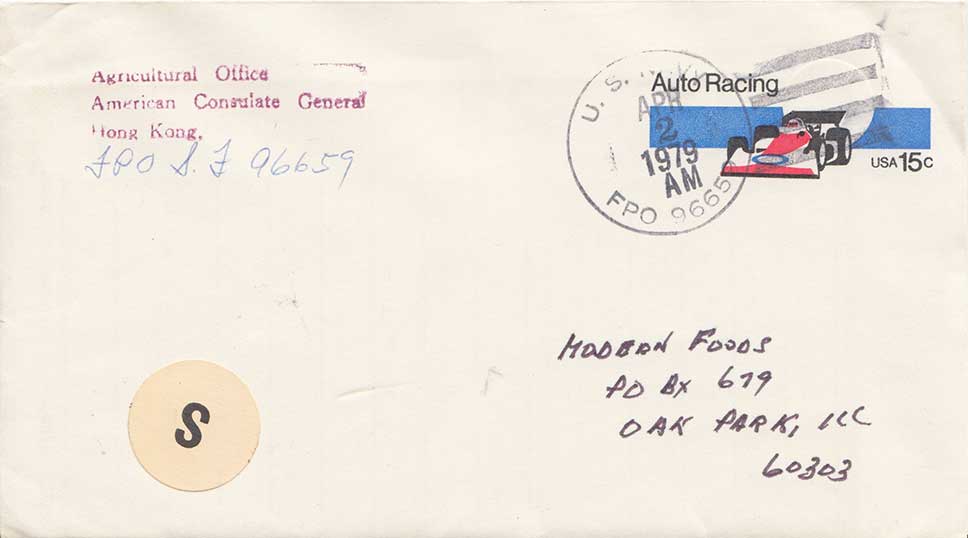 Agricultural Office
American Consulate General
Hong Kong,
FPO S.F 96659
U. S.
APR
2
1979
AM
FPO 9665
Auto Racing
USA 15c
MODERN FOODS
PO BX 679
OAK PARK, ILL
60303
S